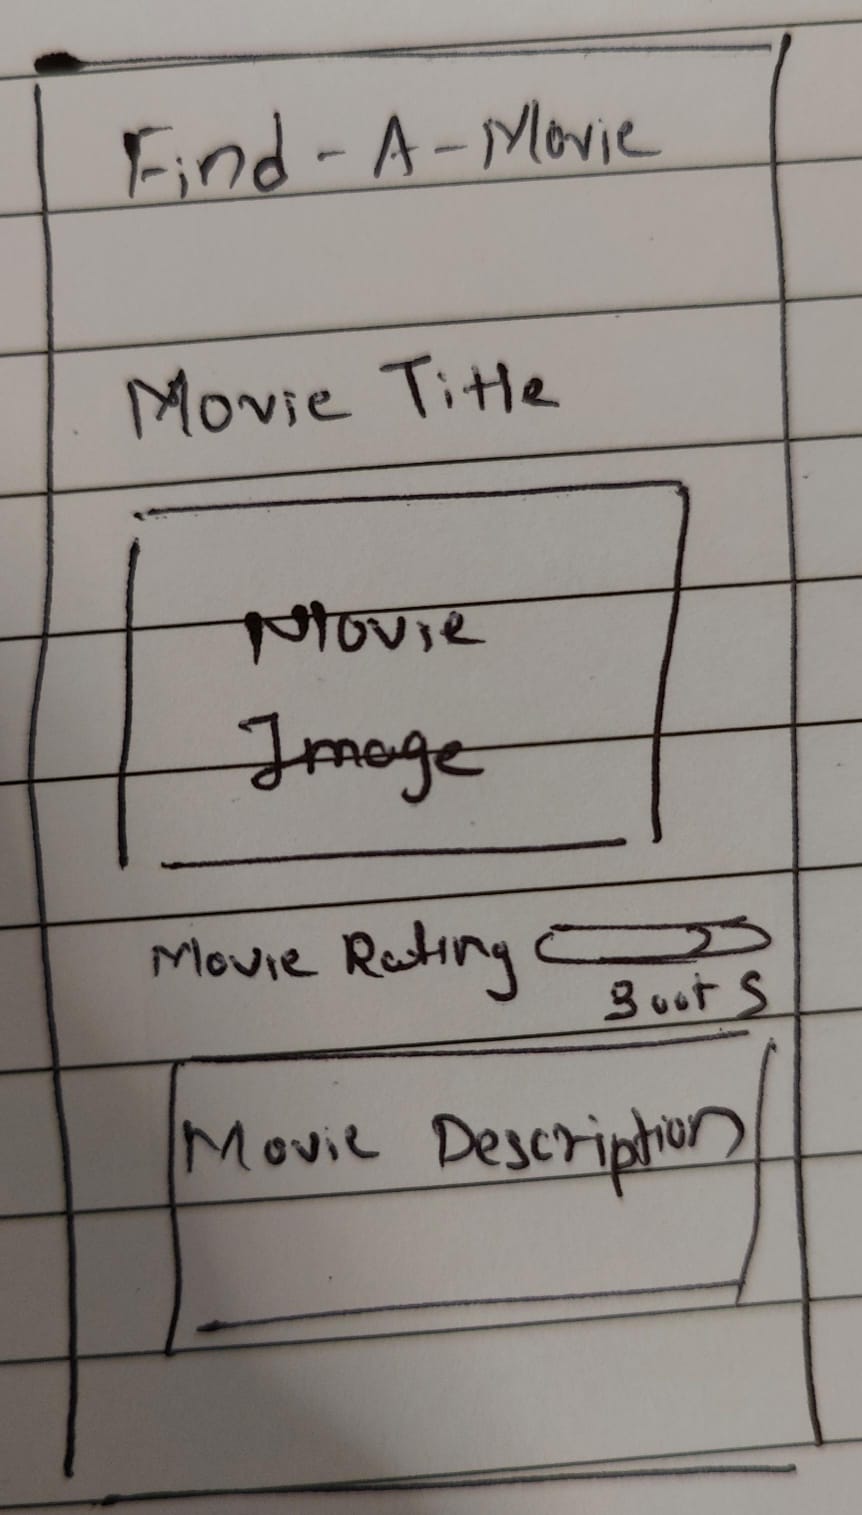 Find-A-Movie
Movie Title
Movie
Image
Movie Rating
3 out 5
Movie Description